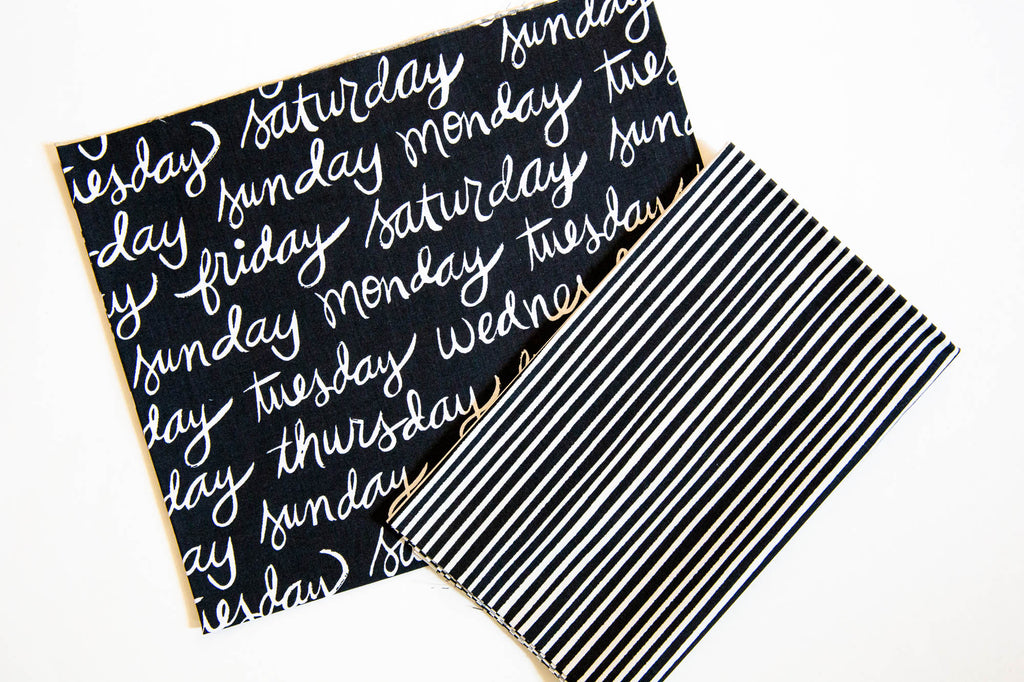 tuesday saturday sunday
day sunday monday tues
y friday saturday sund
sunday monday tuesday
day tuesday wednes
day thursday
ay sunday
uesday sa